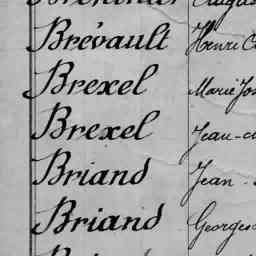 Brévault Henri
Brexel Marie
Brexel Jean
Briand Jean
Briand Georges